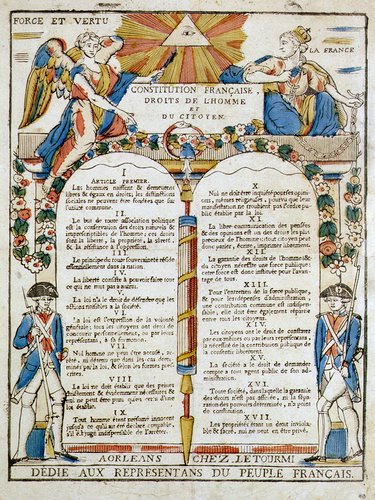 FORCE ET VERTU
LA FRANCE
CONSTITUTION FRANÇAISE,
DROITS DE L'HOMME
ET
DU CITOYEN.
I
ARTICLE PREMIER.
Les hommes naissent & demeurent
libres & égaux en droits; les distinctions
sociales ne peuvent être fondées que sur
l'utilité commune.
II.
Le but de toute association politique
est la conservation des droits naturels &
imprescriptibles de l'homme; ces droits
sont la liberté, la propriété, la sûreté,
& la résistance à l'oppression.
III.
Le principe de toute souveraineté réside
essentiellement dans la nation.
IV.
La liberté consiste à pouvoir faire tout
ce qui ne nuit pas à autrui.
V.
La loi n'a le droit de défendre que les
actions nuisibles à la société.
VI.
La loi est l'expression de la volonté
générale; tous les citoyens ont droit de
concourir personnellement, ou par leurs
représentans, à sa formation.
VII.
Nul homme ne peut être accusé, ar-
rêté, ni détenu que dans les cas déter-
minés par la loi, & selon les formes pres-
crites.
VIII.
La loi ne doit établir que des peines
strictement & évidemment nécessaires, &
nul ne peut être puni qu'en vertu d'une
loi établie.
IX.
Tout homme étant présumé innocent
jusqu'à ce qu'il ait été déclaré coupable,
s'il est jugé indispensable de l'arrêter.
X.
Nul ne doit être inquiété pour ses opini-
ons, mêmes religieuses, pourvu que leur
manifestation ne troublent pas l'ordre pu-
blic établie par la loi.
XI.
La libre communication des pensées
& des opinions est un des droits les plus
précieux de l'homme: tout citoyen peut
donc parler, écrire, imprimer librement.
XII.
La garantie des droits de l'homme &
du citoyen nécessite une force publique:
cette force est donc instituée pour l'avan-
tage de tous.
XIII.
Pour l'entretien de la force publique,
& pour les dépenses d'administration,
une contribution commune est indispen-
sable, elle doit être également répartie
entre tous les citoyens.
XIV.
Les citoyens ont le droit de constater
par eux-mêmes ou par leurs représentans,
la nécessité de la contribution publique de
la consentir librement.
XV.
La société a le droit de demander
compte à tout agent public de son ad-
ministration.
XVI.
Toute société, dans laquelle la garantie
des droits n'est pas assurée, ni la sépa-
ration des pouvoirs déterminée, n'a point
de constitution.
XVII.
Les propriétés étant un droit inviola-
ble & sacré, nul ne peut en être privé.
A ORLEANS CHEZ LETOURMI
DÉDIE AUX REPRESENTANS DU PEUPLE FRANÇAIS.